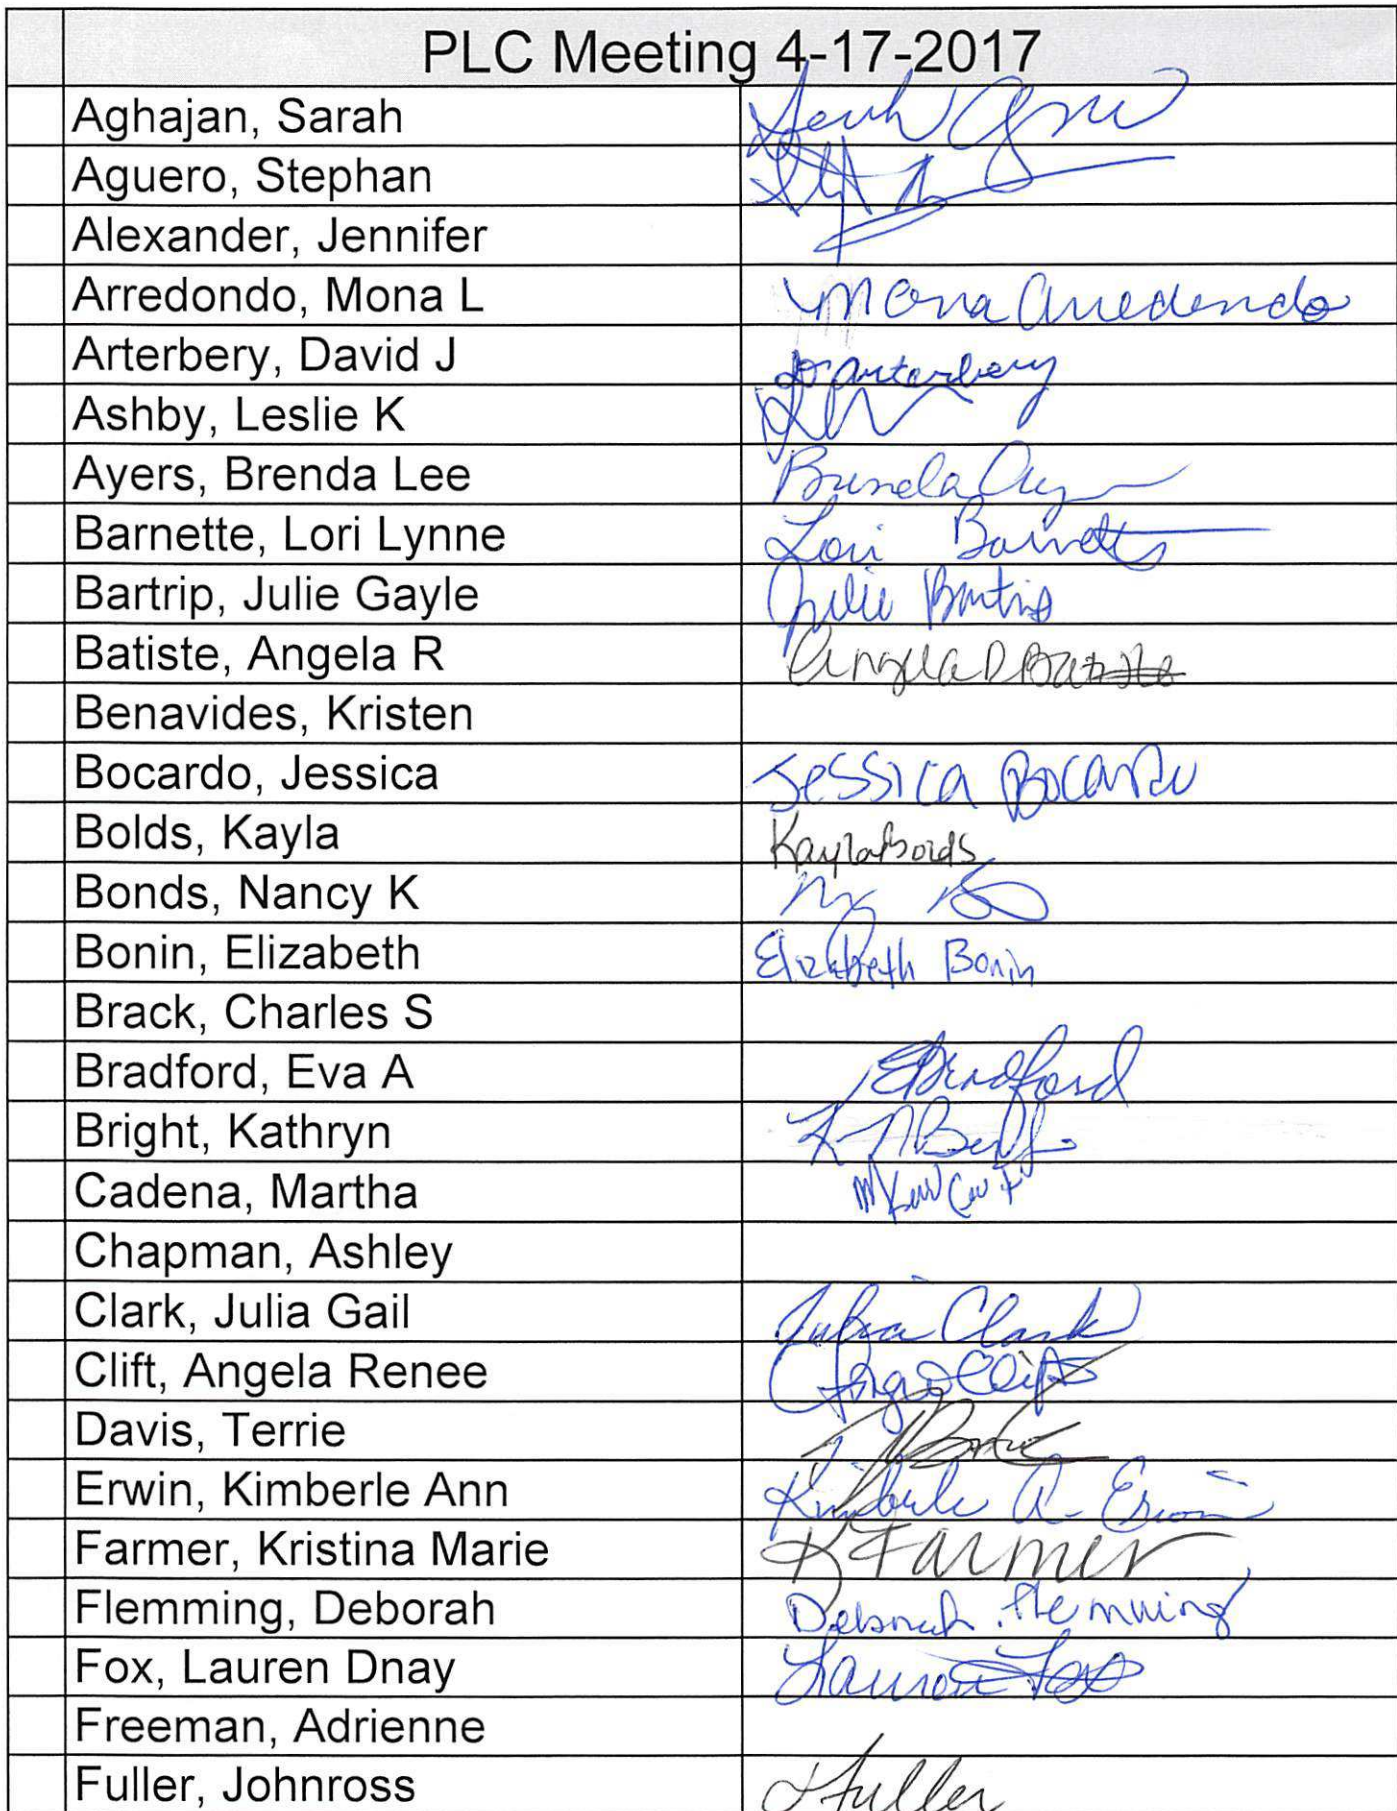 PLC Meeting 4-17-2017
Aghajan, Sarah
Aguero, Stephan
Alexander, Jennifer
Arredondo, Mona L Mona Arredondo
Arterbery, David J Arterbery
Ashby, Leslie K
Ayers, Brenda Lee Brenda
Barnette, Lori Lynne Lori Barnette
Bartrip, Julie Gayle Julie Bartrip
Batiste, Angela R Angela Batiste
Benavides, Kristen
Bocardo, Jessica Jessica Bocardo
Bolds, Kayla Kayla Bolds
Bonds, Nancy K
Bonin, Elizabeth Elizabeth Bonin
Brack, Charles S
Bradford, Eva A EBradford
Bright, Kathryn
Cadena, Martha
Chapman, Ashley
Clark, Julia Gail Julia Clark
Clift, Angela Renee Clift
Davis, Terrie
Erwin, Kimberle Ann Kimberle A. Erwin
Farmer, Kristina Marie K Farmer
Flemming, Deborah Deborah Flemming
Fox, Lauren Dnay Lauren Fox
Freeman, Adrienne
Fuller, Johnross Fuller